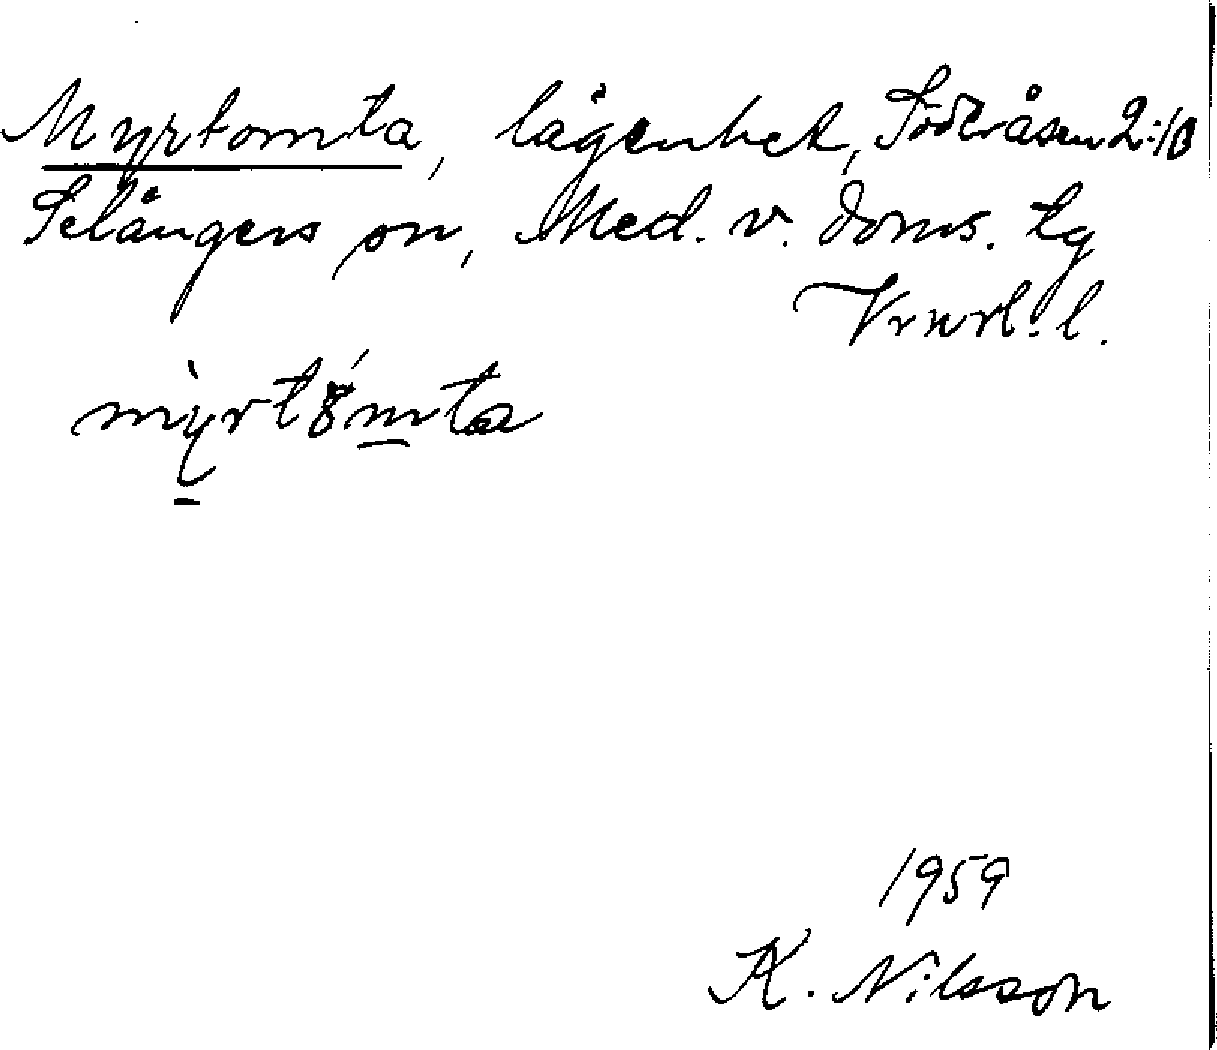 Myrtomta, lägenhet, Söderåsen 2:10
Selångers sn, Med. v. doms. tg
Vnrl. l.
mỳrtómta
1959
K. Nilsson